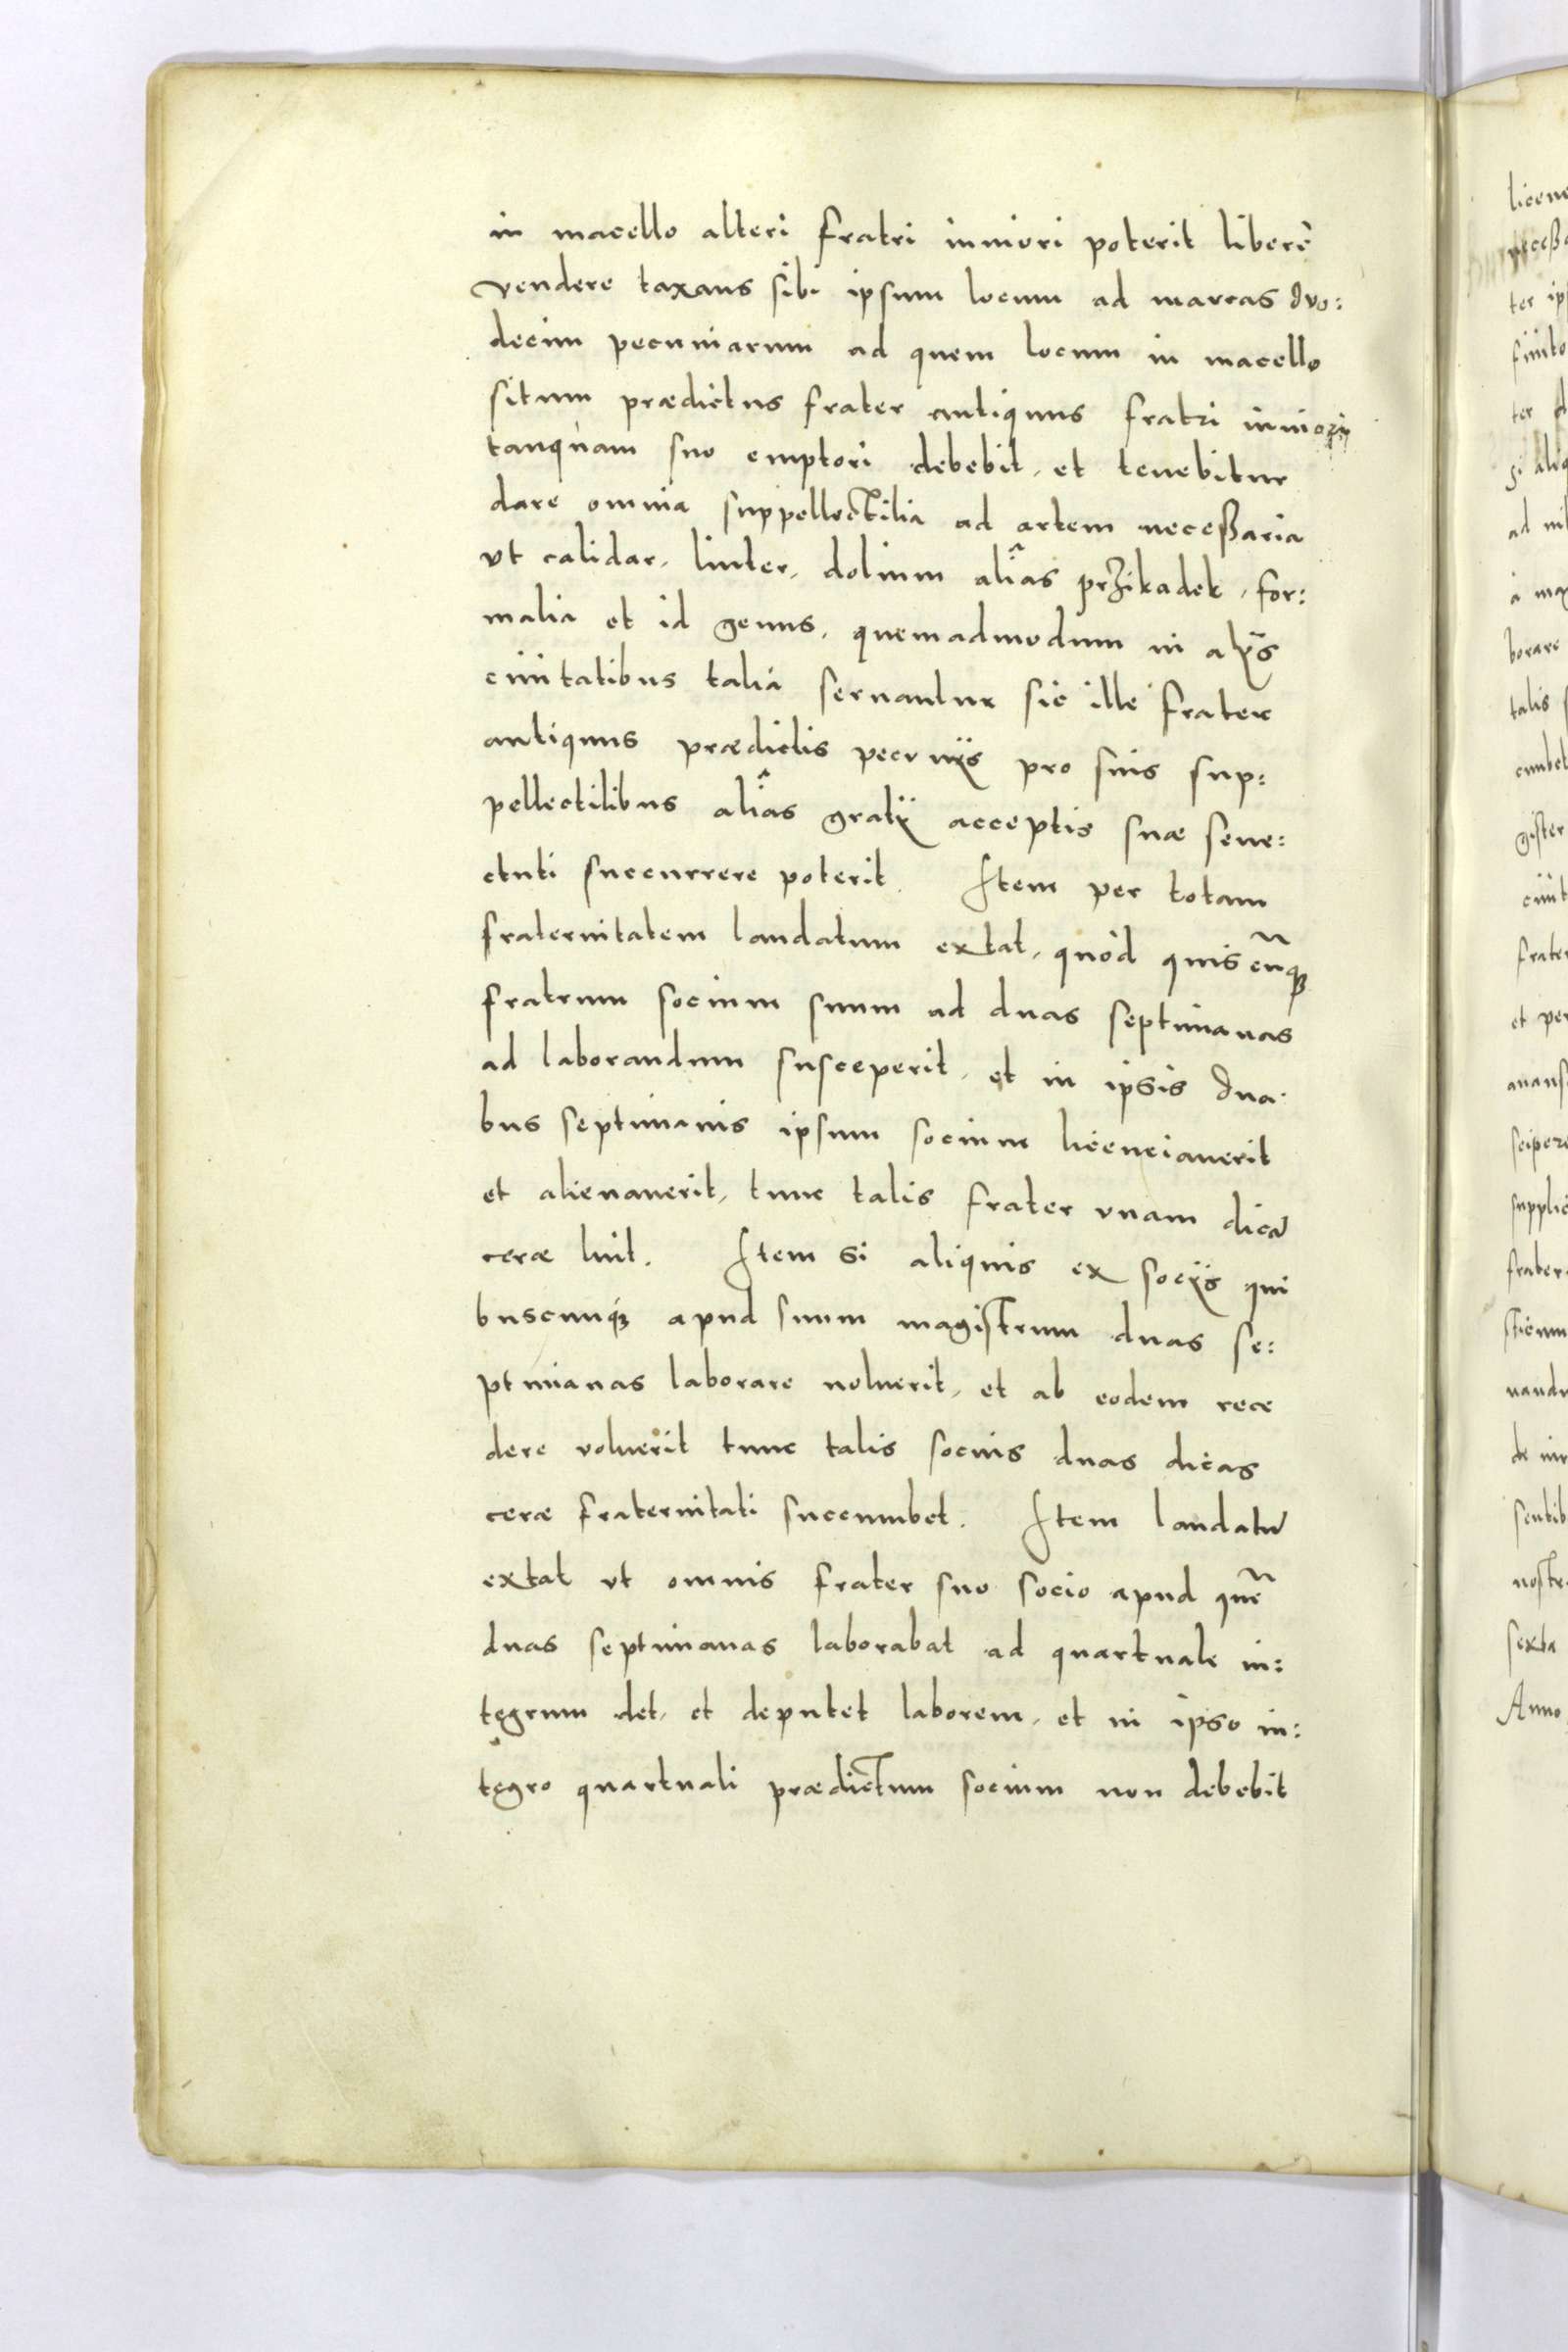 in macello alteri fratri iuniori poterit liberè
vendere taxans sibi ipsum locum ad marcas duo:
decim pecuniarum ad quem locum in macello
situm prædictus frater antiquus fratri iuniori
tanquàm suo emptori debebit, et tenebitur
dare omnia suppellectilia ad artem neceßaria
vt calidar, linter, dolium aliâs przikadek, for:
malia et id genus, quemadmodum in alijs
ciuitatibus talia seruantur sic ille frater
antiquus prædictis pecunijs pro suis sup:
pellectilibus aliâs gratÿ acceptis suæ sene:
ctuti succurrere poterit. Item per totam
fraternitatem laudatum extat, quòd quiscũq3
fratrum socium suum ad duas septimanas
ad laborandum susceperit, et in ipsis dua:
bus septimanis ipsum socium licenciauerit
et alienauerit, tunc talis frater vnam dicã
ceræ luit. Item si aliquis ex socijs qui
buscunq3 apud suum magistrum duas se:
ptimanas laborare noluerit, et ab eodem rece
dere voluerit tunc talis socius duas dicas
ceræ fraternitati succumbet. Item laudatũ
extat vt omnis frater suo socio apud quẽ
duas septimanas laborabat ad quartuale in:
tęgrum det, et deputet laborem, et in ipso in:
tęgro quartuali prædictum socium non debebit
licen
neceßa
ter ip
finito
ter
si aliq
ad
à
borare
talis
cumbet
gister
ciuit
frater
et per
scipere
supplic
frater
sticum
nandu
de
sentib
nostr
sexta
Anno